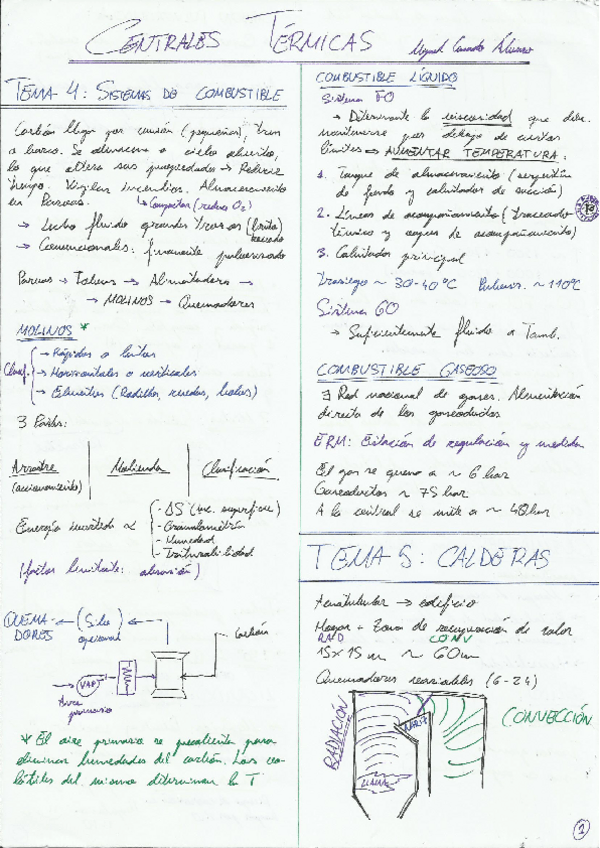 CENTRALES TÉRMICAS
TEMA 4: SISTEMAS DE COMBUSTIBLE
Carbón llega por camión (pequeñas), tren
o barco. Se almacena a cielo abierto,
lo que altera sus propiedades → Reducir
tiempo. Vigilar incendios. Almacenamiento
en Parvas. Compactar (reduce O2)
→ Lecho fluido grandes trozos
→ Convencionales: finamente pulverizado
Parvas → Tolvas → Alimentadores →
→ MOLINOS → Quemadores
MOLINOS *
Clasif.
→ Rápidos o lentos
→ Horizontales o verticales
→ Elementos (Rodillos, ruedas, bolas)
3 Partes:
Arrastre | Molienda | Clasificación
(accionamiento)
Energía invertida ∝
- ΔS (inc. superficie)
- Granulometría
- Humedad
- Triturabilidad
(factor limitante: abrasión)
QUEMADORES ← (Silo) opcional
Carbón
VAP
Aire primario
* El aire primario se precalienta para
eliminar humedades del carbón. Los vo-
látiles del mismo determinan la T
COMBUSTIBLE LÍQUIDO
Sistema FO
→ Determinante la viscosidad que debe
mantenerse por debajo de ciertos
límites ⇒ AUMENTAR TEMPERATURA:
1. Tanque de almacenamiento (serpentín
de fondo y calentador de succión)
2. Líneas de acompañamiento (traceado
térmico y vapor de acompañamiento)
3. Calentador principal
Trasiego ~ 30-40ºC Pulveriz. ~ 110ºC
Sistema GO
→ Suficientemente fluido a Tamb.
COMBUSTIBLE GASEOSO
∃ Red nacional de gases. Alimentación
directa de los gaseoductos
ERM: Estación de regulación y medida
El gas se quema a ~ 6 bar
Gaseoductos ~ 75 bar
A la central se mete a ~ 40 bar
TEMA 5: CALDERAS
Acuotubular → edificio
Hogar + Zona de recuperación de calor
RAD CONV
15x15 m ~ 60m
Quemadores variables (6-24)
RADIACIÓN
NARIZ
CONVECCIÓN
LLAMA
1